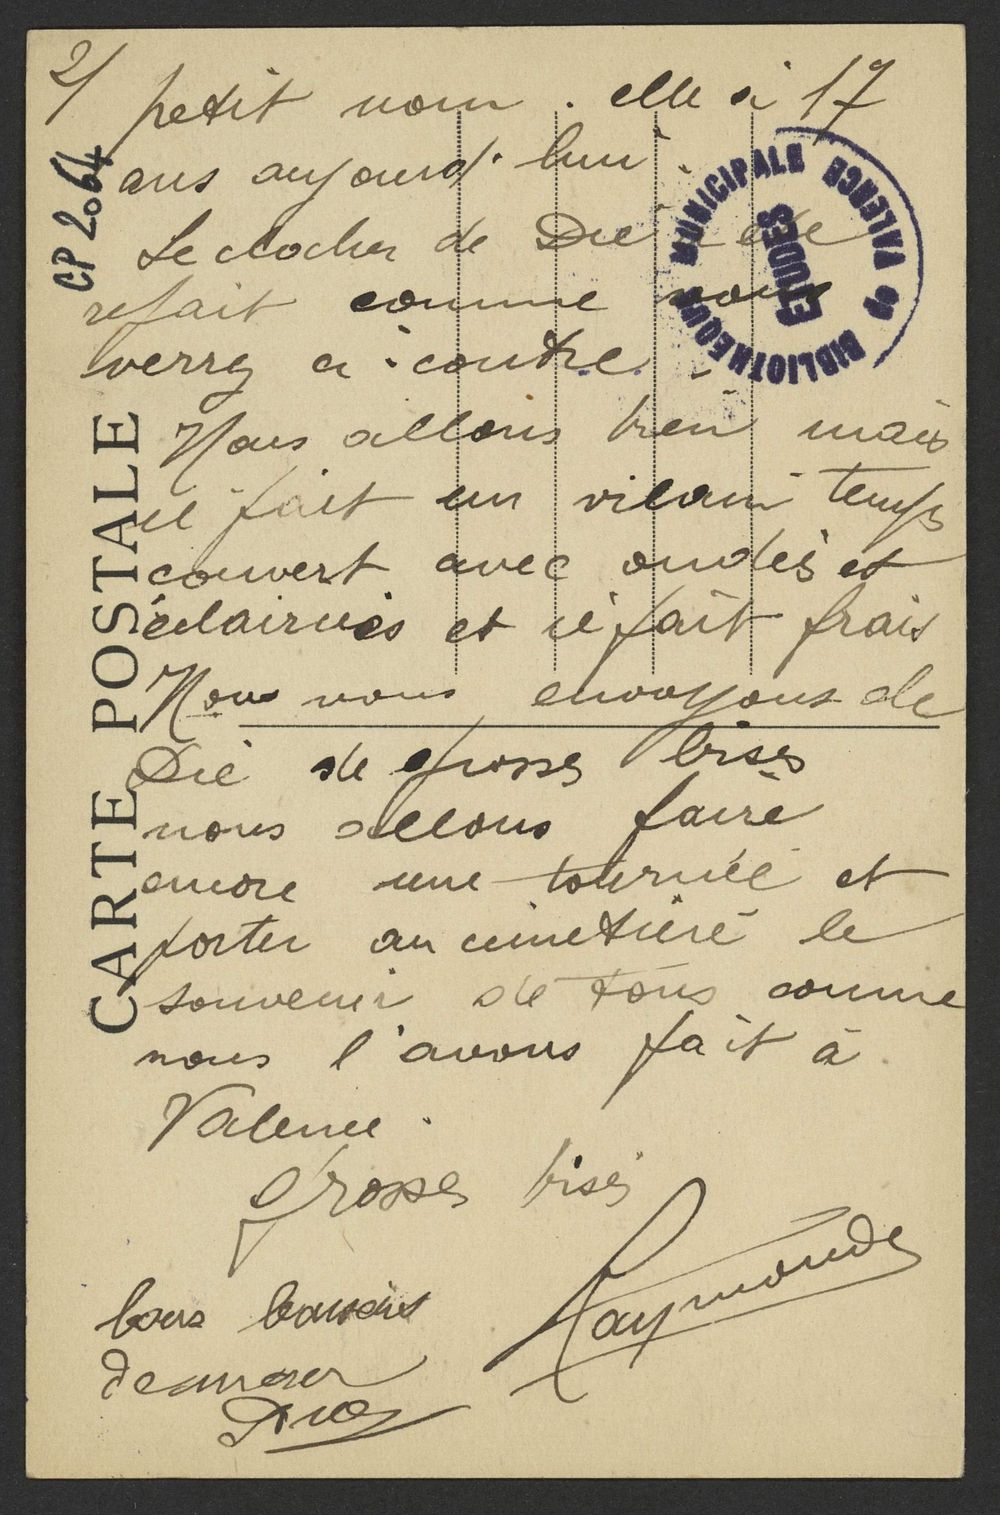 2/
petit nom. elle a 17
ans aujourd'hui.
Le clocher de Die a été
refait comme vous
verrez ci-contre.
Nous allons bien mais
il fait un vilain temps
couvert avec ondés et
éclaircies et il fait frais
Nous vous envoyons de
Die de grosses bises
nous allons faire
encore une tournée et
porter au cimetière le
souvenir de tous comme
nous l'avons fait à
Valence.
Grosses bises
Raymonde
bons baisers
CP 2064
CARTE POSTALE
BIBLIOTHEQUE MUNICIPALE DE VALENCE
ETUDES